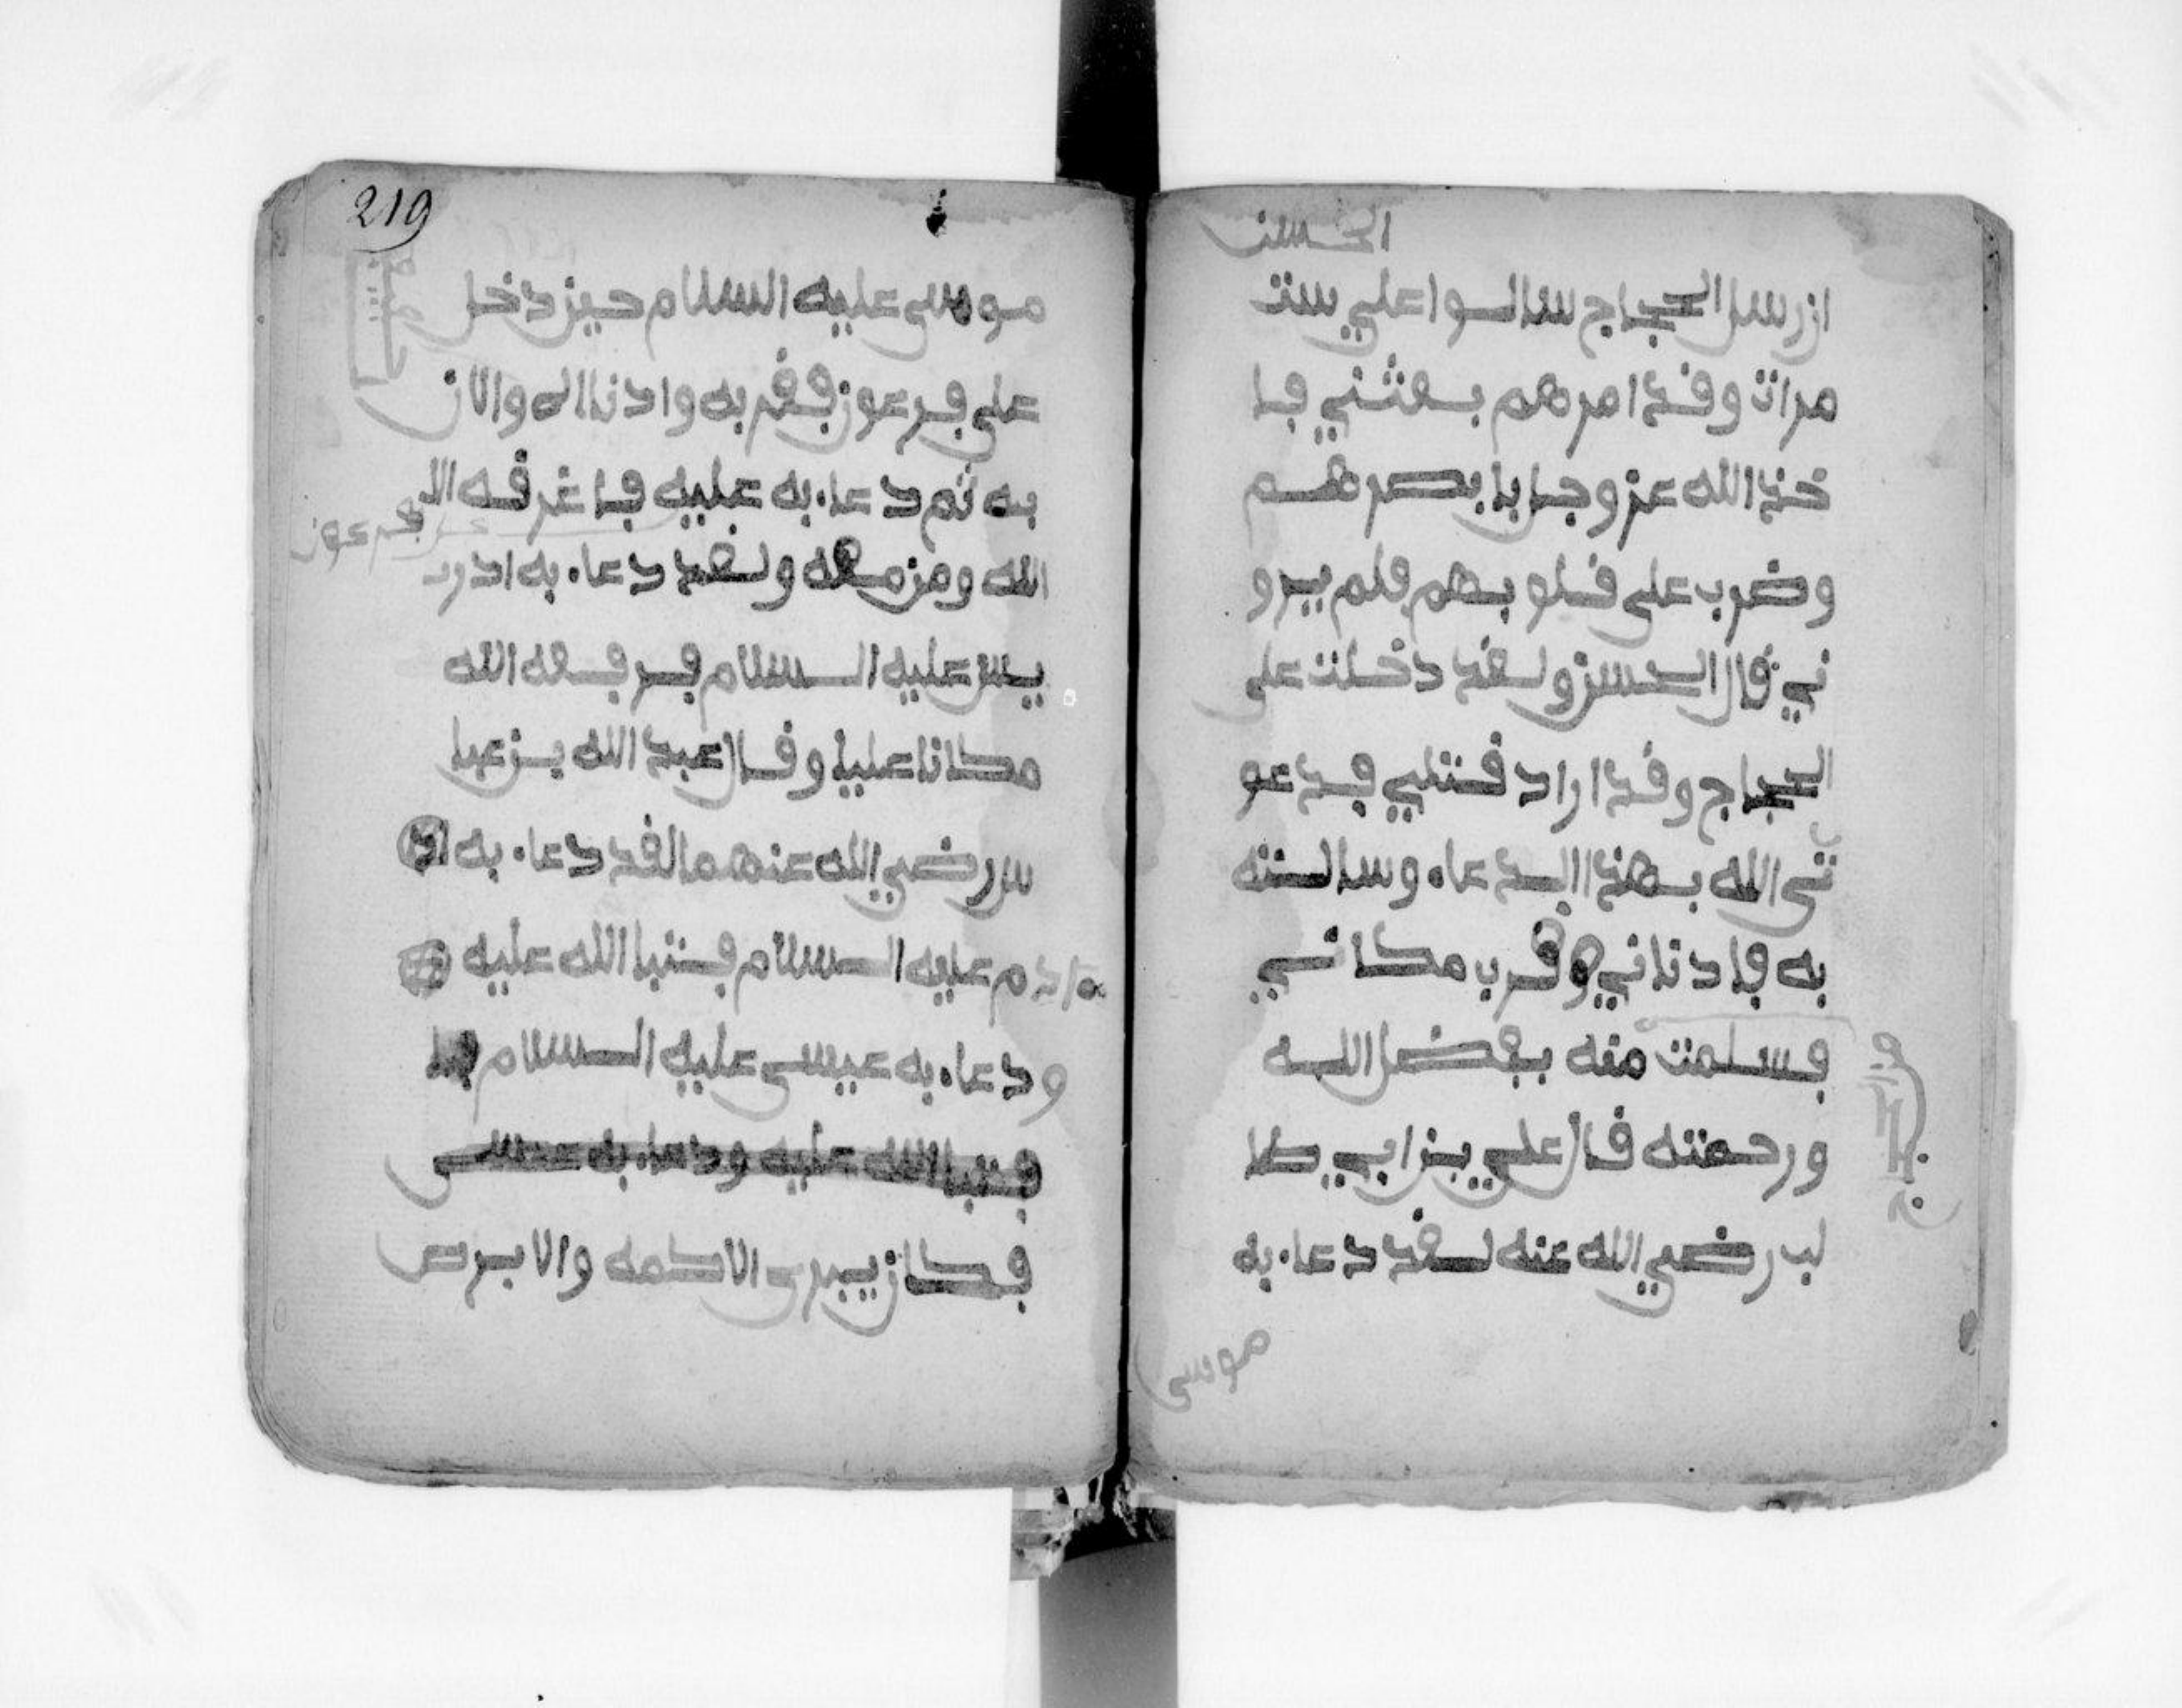 الحسن
ارسل الحجاج سالوا علي ست
مرات وقد امرهم بعثني فا
خذ الله عز وجل بابصرهم
وضرب على قلوبهم فلم يرو
ني قال الحسن ولقد دخلت على
الحجاج وقد اراد قتلي فدعو
تى الله بهذا الدعاء وسالته
به فادناني وقرب مكاني
فسلمت منه بفضل الله
ورحمته قال علي بن ابي طا
لب رضي الله عنه لقد دعا به
موسى
219
موسى عليه السلام حين دخل
على فرعون فقربه وادناه والان
به ثم دعا به عليه فاغرقه الا
فرعون
الله ومن معه ولقد دعا به ادر
يس عليه السلام فرفعه الله
مكانا عليا وقال عبد الله بن عبا
س رضي الله عنهما لقد دعا به
ادم عليه السلام فتبا الله عليه
ودعا به عيسى عليه السلام
فتبا الله عليه ودعا به عيسى
فكان يبرى الاكمه والابرص